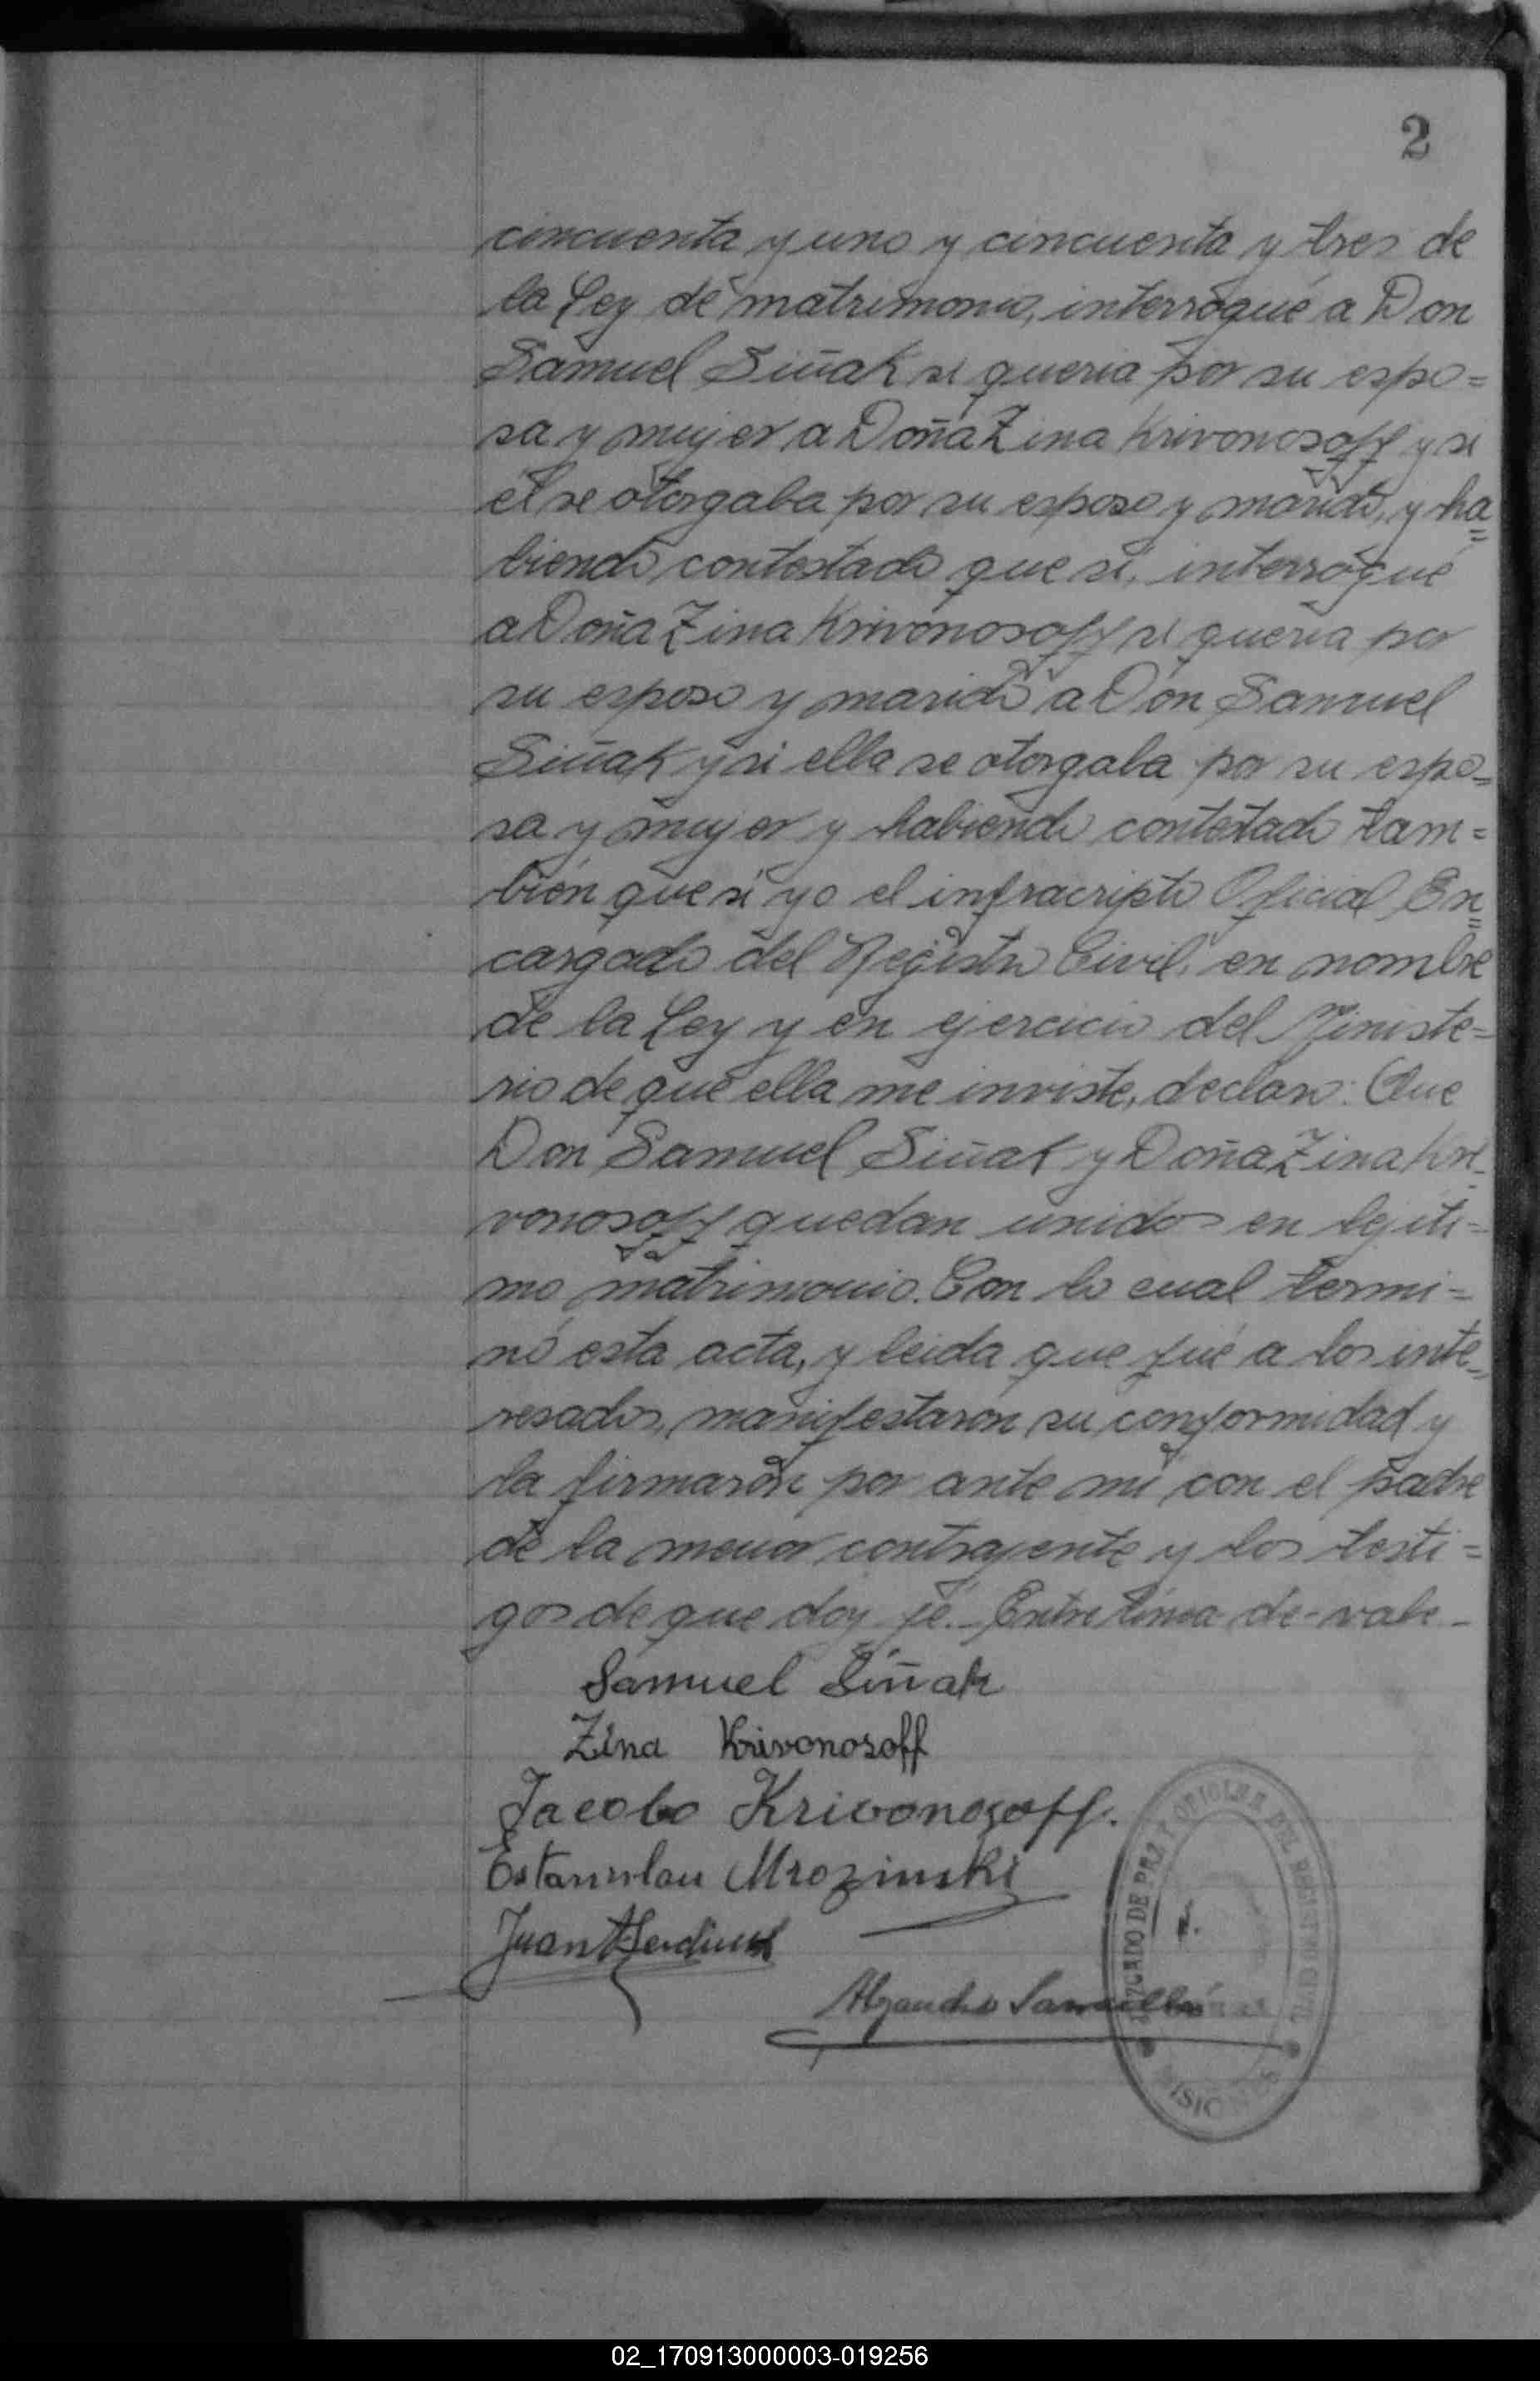 2
cincuenta y uno y cincuenta y tres de
la Ley de matrimonio, interrogué a Don
Samuel Siñak si queria por su espo=
sa y mujer a Doña Zina Krivonosoff y si
él se otorgaba por su esposo y marido, y ha=
biendo contestado que si, interrogué
a Doña Zina Krivonosoff si queria por
su esposo y marido a Don Samuel
Siñak y si ella se otorgaba por su espo=
sa y mujer y habiendo contestado tam=
bién que si yo el infracripto Oficial En=
cargado del Registro Civil, en nombre
de la Ley y en ejercicio del Ministe=
rio de que ella me inviste, declaro: Que
Don Samuel Siñak y Doña Zina Kri=
vonosoff quedan unidos en lejiti=
mo matrimonio. Con lo cual termi=
nó esta acta, y leida que fué a los inte=
resados, manifestaron su conformidad y
la firmaron por ante mi con el padre
de la menor contrayente y los testi=
gos de que doy fé.- Entre linea-de-vale-
Samuel Siñak
Zina Krivonosoff
Jacobo Krivonosoff.
Estanislau Mrozinski
Juan
Alejandro
JUZGADO DE PAZ Y OFICINA DEL REGISTRO CIVIL
MISIONES
02_170913000003-019256